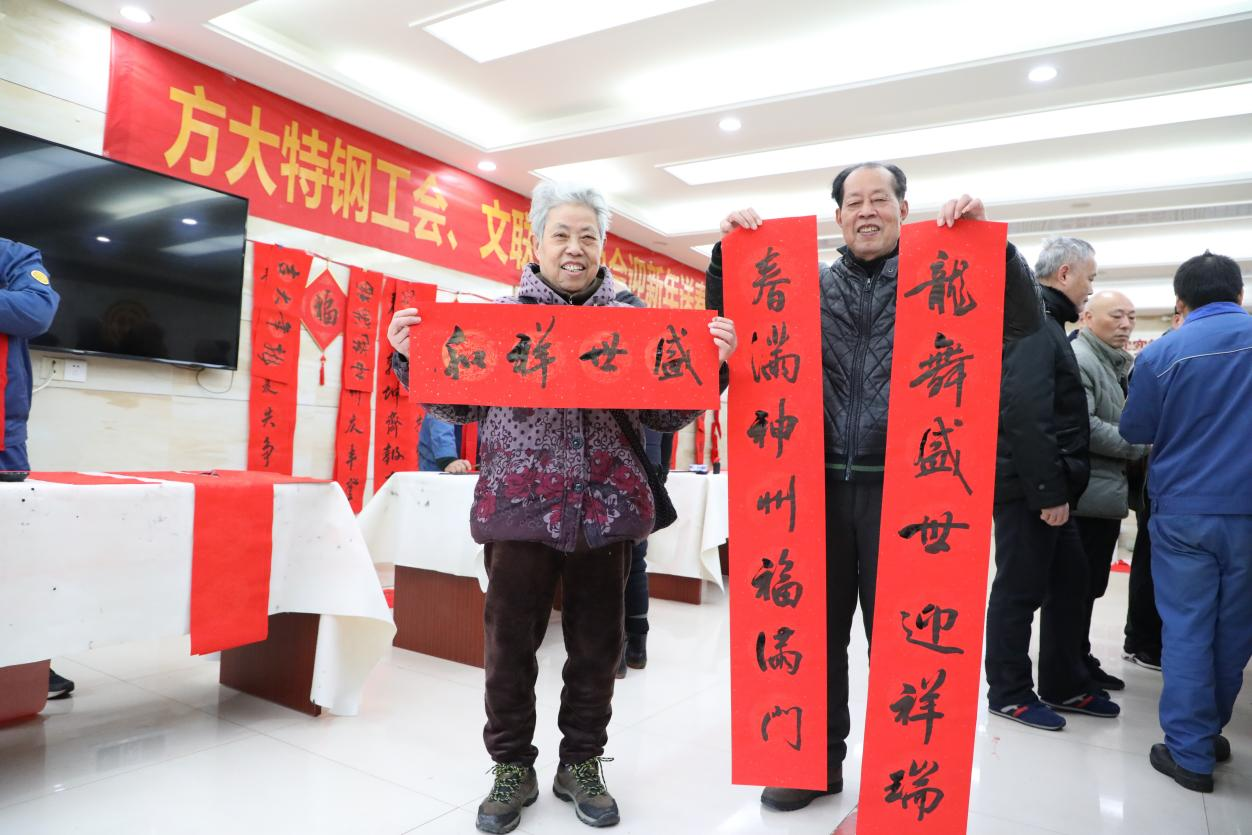 方大特钢工会、文联 会迎新年送春
福
盛世祥和
龍舞盛世迎祥瑞
春滿神州福滿門